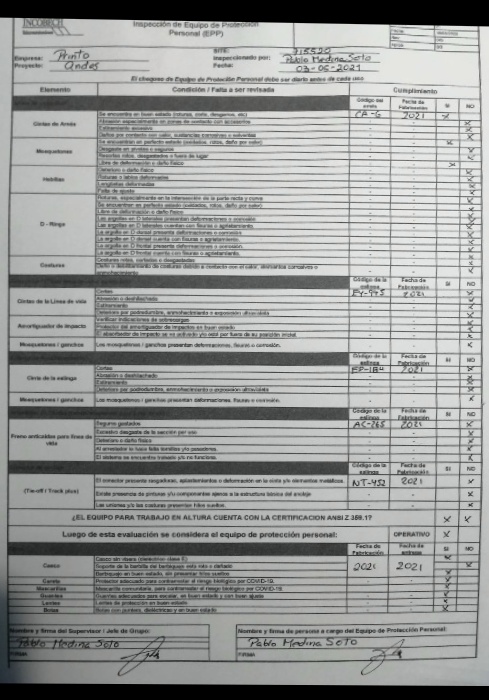 INCOBECH
Inspección de Equipo de Protección
Personal (EPP)
SITE: 715520
Empresa: Pronto
Inspeccionado por: Pablo Medina Soto
Proyecto: Andes
Fecha: 03-05-2021
El chequeo de Equipo de Protección Personal debe ser diario antes de cada uso
Elemento Condición / Falta a ser revisada Cumplimiento
Código del arnés Fecha de Fabricación SI NO
Cintas de Arnés
Se encuentra en buen estado (roturas, corte, desgarros, etc) CA-6 2021 X
Abrasión especialmente en zonas de contacto con accesorios - - X
Estiramiento excesivo - - X
Daños por contacto con calor, sustancias corrosivas o solventes - - X
Mosquetones
Se encuentran en perfecto estado (oxidados, rotos, daño por calor) - - X
Desgaste en pivotes o seguros - - X
Resortes rotos, desgastados o fuera de lugar - - X
Hebillas
Libre de deformación o daño físico - - X
Deterioro o daño físico - - X
Roturas o labios deformados - - X
Lengüetas deformadas - - X
Falta de ajuste - - X
D - Rings
Roturas, especialmente en la intersección de la parte recta y curva - - X
Se encuentran en perfecto estado (oxidados, rotos, daño por calor) - - X
Libre de deformación o daño físico - - X
Las argollas en D laterales presentan deformaciones o corrosión - - X
Las argollas en D laterales cuentan con fisuras o agrietamiento. - - X
La argolla en D dorsal presenta deformaciones o corrosión - - X
La argolla en D dorsal cuenta con fisuras o agrietamiento. - - X
La argolla en D frontal presenta deformaciones o corrosión. - - X
La argolla en D frontal cuenta con fisuras o agrietamiento. - - X
Costuras
Costuras rotas, cortadas o desgastadas - - X
Daño o debilitamiento de costuras debido a contacto con el calor, solventes corrosivos o enmohecimiento - - X
Código de la eslinga Fecha de Fabricación SI NO
Cintas de la Línea de vida
Cortes EY-945 2021 X
Abrasión o deshilachado - - X
Estiramiento - - X
Deterioro por podredumbre, enmohecimiento o exposición ultravioleta - - X
Amortiguador de impacto
Verificar indicaciones de sobrecargas - - X
Protector del amortiguador de impactos en buen estado - - X
El absorbedor de impacto se va activado y/o está por fuera de su posición inicial. - - X
Mosquetones / ganchos Los mosquetones / ganchos presentan deformaciones, fisuras o corrosión. - - X
Código de la eslinga Fecha de Fabricación SI NO
Cinta de la eslinga
Cortes 2021 X
Abrasión o deshilachado - - X
Estiramiento - - X
Deterioro por podredumbre, enmohecimiento o exposición ultravioleta - - X
Mosquetones / ganchos Los mosquetones / ganchos presentan deformaciones, fisuras o corrosión. - - X
Código de la eslinga Fecha de Fabricación SI NO
Freno anticaídas para línea de vida
Seguros gastados AC-265 2021 X
Excesivo desgaste de la sección por uso - - X
Deterioro o daño físico - - X
Al arrestador le hace falta tornillos y/o pasadores. - - X
El sistema se encuentra trabado y/o no funciona. - - X
Código de la eslinga Fecha de Fabricación SI NO
(Tie-off / Track plus)
El conector presenta rasgaduras, aplastamientos o deformación en la cinta y/o elementos metálicos. NT-452 2021 X
Existe presencia de pinturas y/u componentes ajenos a la estructura básica del anclaje - - X
Las uniones y/o las costuras presentan hilos sueltos. - - X
¿EL EQUIPO PARA TRABAJO EN ALTURA CUENTA CON LA CERTIFICACION ANSI Z 359.1? X X
Luego de esta evaluación se considera el equipo de protección personal: OPERATIVO X
Fecha de Fabricación SI NO
Casco
Casco sin visera (dieléctrico clase E) X
Soporte de la barbilla del barbiquejo esta roto o dañado 2021 2021 X
Barbiquejo en buen estado, sin presentar hilos sueltos. X
Careta Protector adecuado para contrarrestar el riesgo biológico por COVID-19. - - X
Mascarillas Mascarilla comunitaria, para contrarrestar el riesgo biológico por COVID-19. - - X
Guantes Guantes adecuados para escalar, en buen estado y con buen ajuste - - X
Lentes Lentes de protección en buen estado - - X
Botas Botas con puntera, dieléctricas y en buen estado - - X
Nombre y firma del Supervisor / Jefe de Grupo:
Nombre y firma de persona a cargo del Equipo de Protección Personal:
Pablo Medina Soto
Pablo Medina Soto
FIRMA
FIRMA